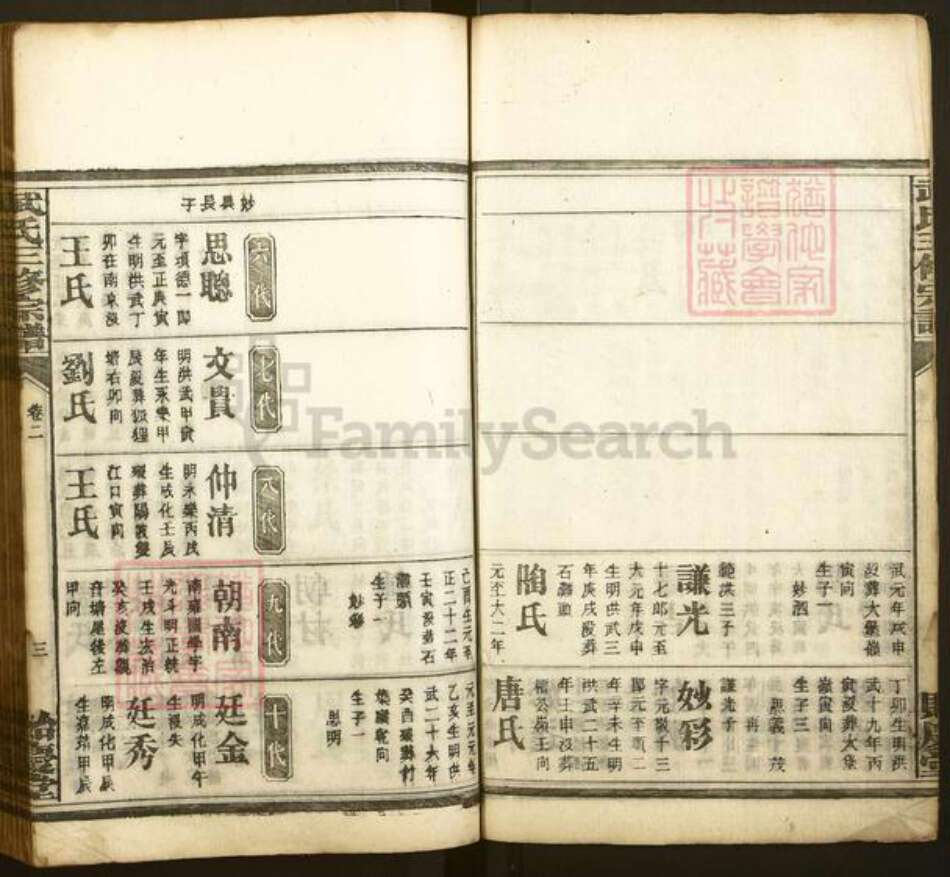 武元年戊申
歿葬大堡嶺
寅向
生子一
妙酒
範洪三子
謙光
十七郎元至
大元年戊申
生明洪武三
年庚戌歿葬
石灘頭
陶氏
元至大二年
丁卯生明洪
武十九年丙
寅歿葬大堡
嶺寅向
生子三
思義
茂
謙光子
妙彩
字元敬千三
郎元至順二
年辛未生明
洪武二十五
年壬申沒葬
楊公嶺壬向
唐氏
亡酉生元至
正二十二年
壬寅歿葬石
灘頭
生子一
妙彩
元至元元年
乙亥生明洪
武二十六年
癸酉歿
乾向
生子一
思明
妙興長子
六代
思聰
字項德一郎
元至正庚寅
生明洪武丁
卯在南京歿
王氏
七代
文貴
明洪武甲寅
年生永樂甲
辰歿葬狐狸
塘右卯向
劉氏
八代
仲清
明永樂丙戌
生成化壬辰
歿葬陽家
江口寅向
王氏
九代
朝南
南雍國學字
光斗明正統
壬戌生宏治
癸亥歿葬觀
音塘尾後左
甲向
十代
廷金
明成化甲午
生歿失
廷秀
明成化甲辰
生嘉靖甲辰
武氏三修宗譜
卷二
三
FamilySearch